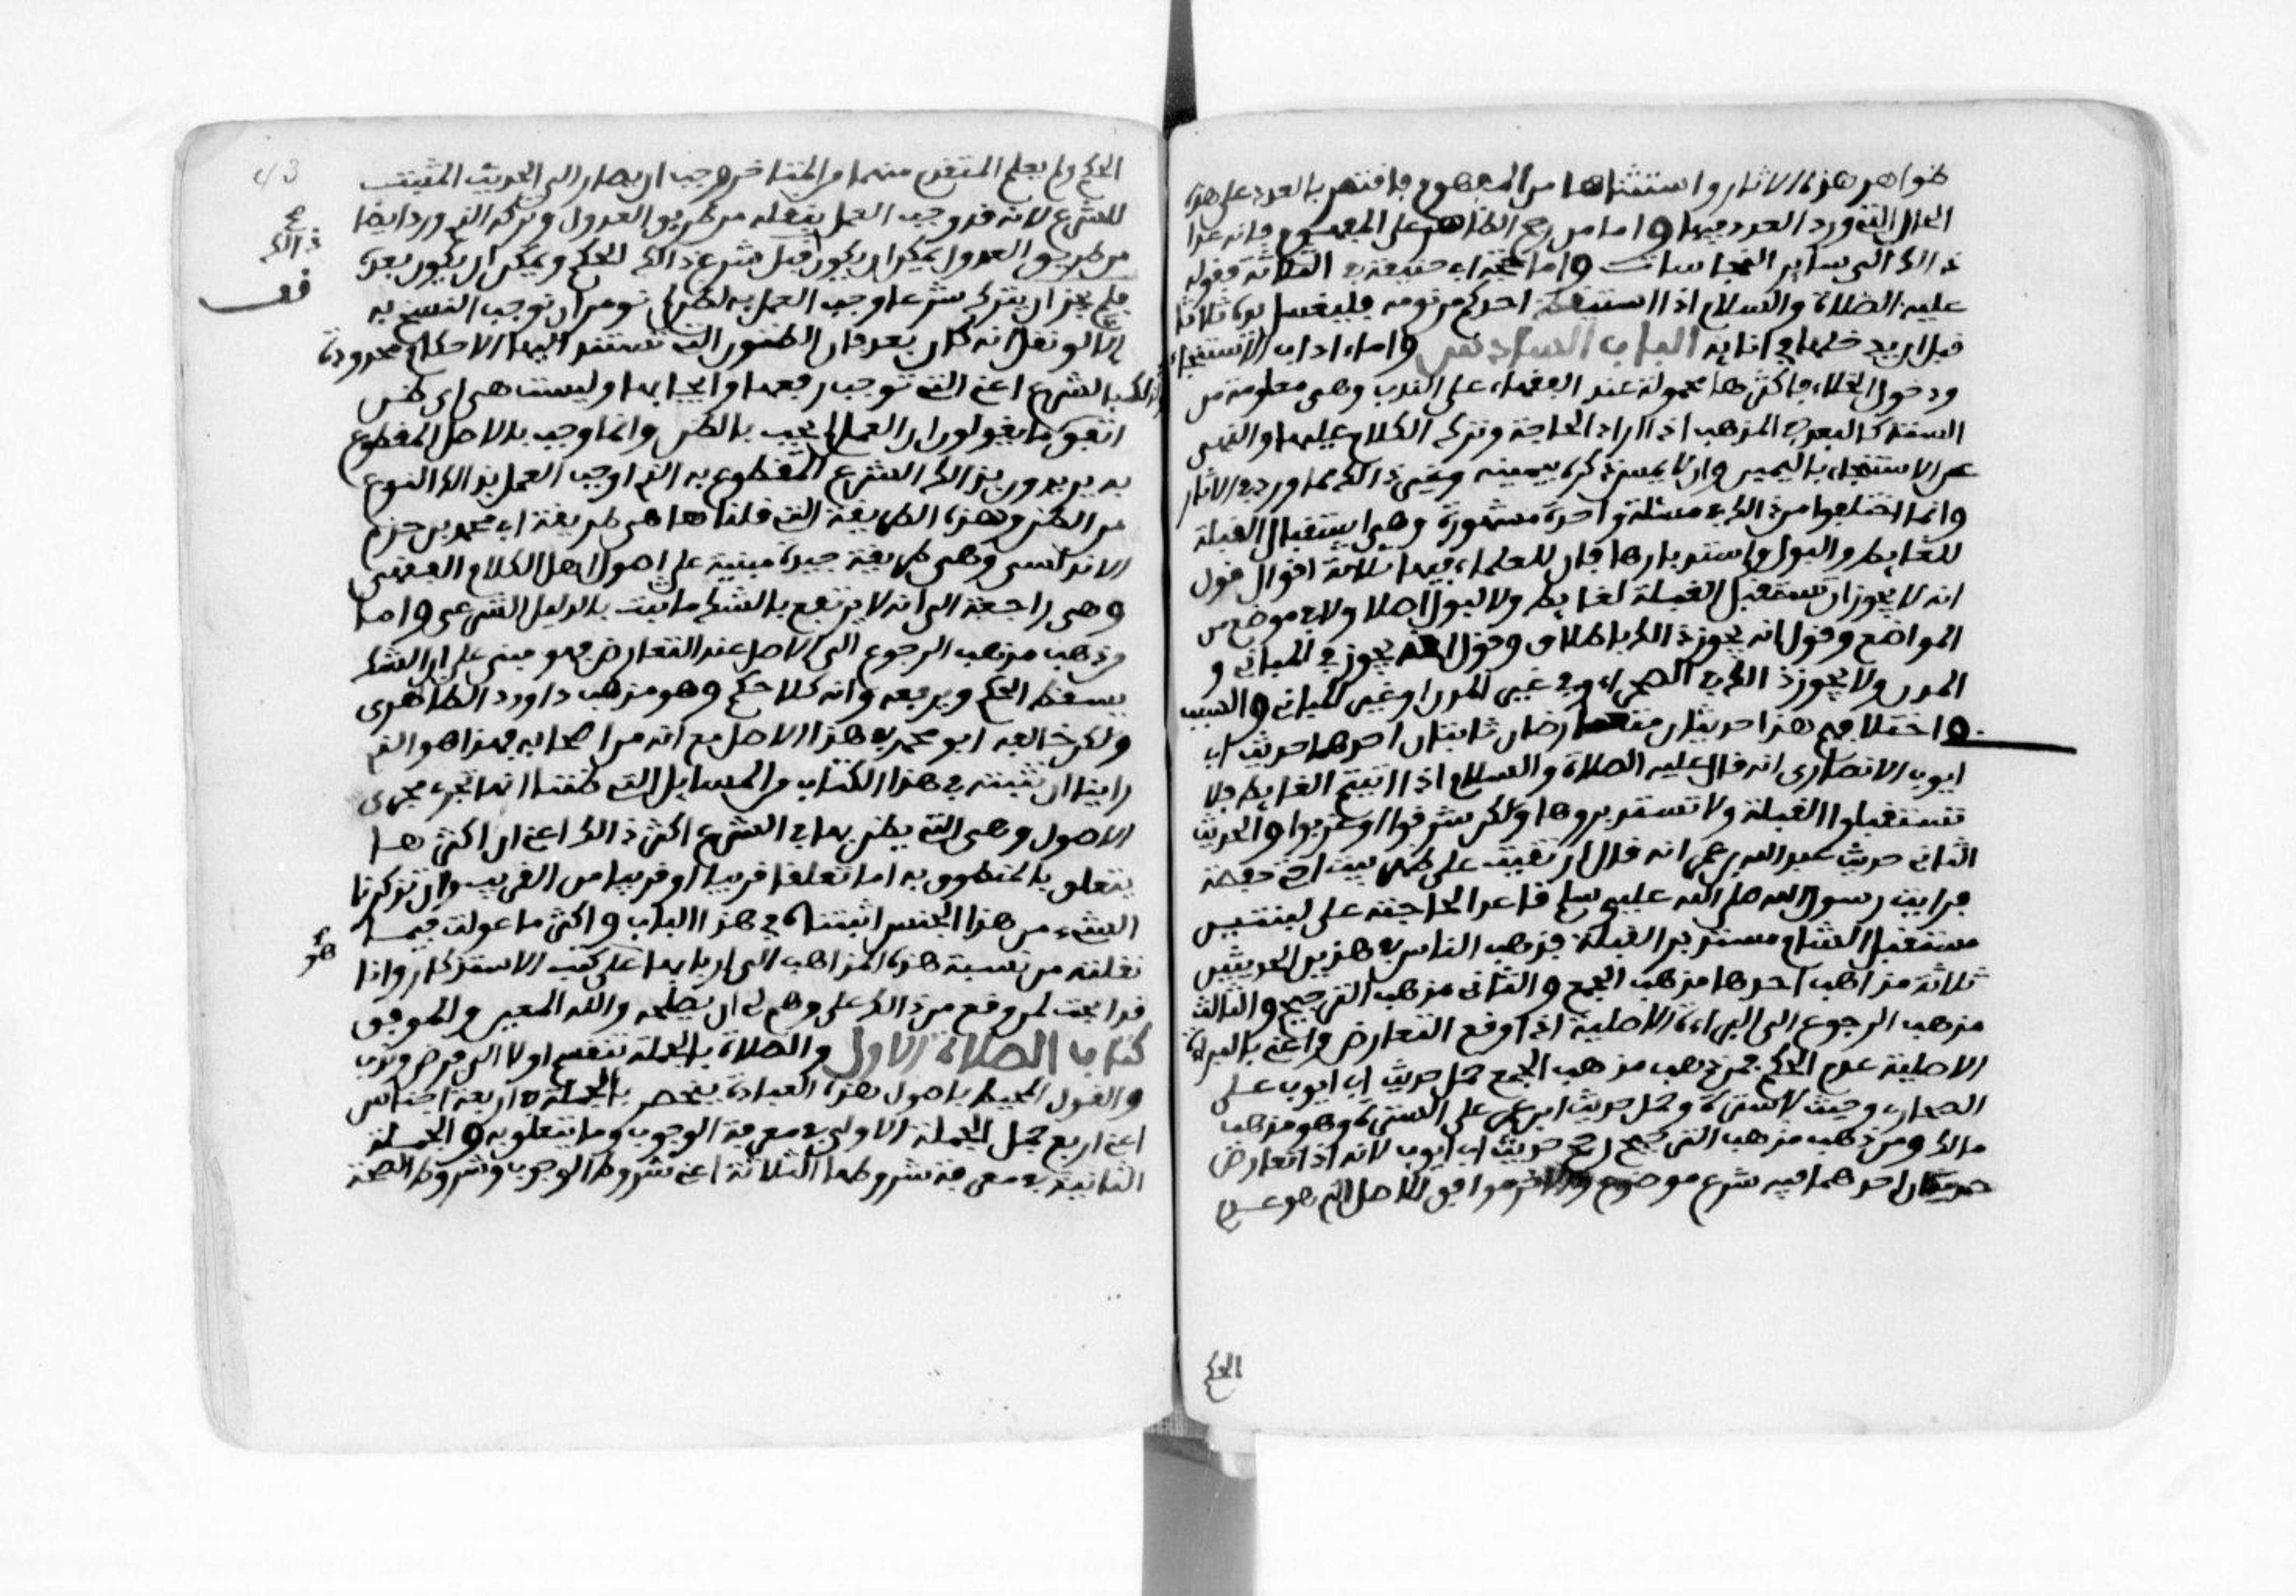 ظواهر هذه الاثار واستثناها من المفهوم فاقتصر بالعدد على هذه
المحال التي ورد العدد فيها واما من رجح الظاهر على المفهوم فانه عدا
ذالك الى سائر النجاسات واما حجة ابي حنيفة في الثلاثة فقوله
عليه الصلاة والسلام اذا استيقظ احدكم من نومه فليغسل يده ثلاثا
قبل ان يدخلها في انائه الباب السادس واما اداب الاستنجاء
ودخول الخلاء فاكثرها محمولة عند الفقهاء على الندب وهي معلومة من
السنة كالبعد في المذهب اذا اراد الحاجة وترك الكلام عليها والنهي
عن الاستنجاء باليمين وان لا يمس ذكره بيمينه وغير ذالك مما ورد في الاثار
وانما اختلفوا من ذالك في مسئلة واحدة مشهورة وهي استقبال القبلة
للغايط والبول واستدبارها فان للعلماء فيها ثلاثة اقوال قول
انه لا يجوز ان تستقبل القبلة لغايط ولا لبول اصلا ولا في موضع من
المواضع وقول انه يجوز ذالك باطلاق وقول انه يجوز في المباني و
المدن ولا يجوز ذالك في الصحراء وفي غير المدن او غير المباني والسبب
في اختلافهم هذا حديثان متعارضان ثابتان احدهما حديث ابي
ايوب الانصاري انه قال عليه الصلاة والسلام اذا اتيتم الغايط فلا
تستقبلوا القبلة ولا تستدبروها ولكن شرقوا او غربوا والحديث
الثاني حديث عبد الله بن عمر انه قال ارتقيت على ظهر بيت اختي حفصة
فرايت رسول الله صلى الله عليه وسلم قاعدا لحاجته على لبنتين
مستقبل الشام مستدبر القبلة فذهب الناس في هذين الحديثين
ثلاثة مذاهب احدها مذهب الجمع والثاني مذهب الترجيح والثالث
مذهب الرجوع الى البراءة الاصلية اذا وقع التعارض واعني بالبراءة
الاصلية عدم الحكم فمن ذهب مذهب الجمع حمل حديث ابي ايوب على
الصحارى وحيث لا سترة وحمل حديث ابن عمر على السترة وهو مذهب
مالك ومن ذهب مذهب الترجيح رجح حديث ابي ايوب لانه اذا تعارض
حديثان احدهما فيه شرع موضوع والاخر موافق للاصل الذي هو عدم
الحكم
43
الحكم ولم يعلم المتقدم منهما من المتاخر وجب ان يصار الى الحديث المثبت
للشرع لانه قد وجب العمل بنقله من طريق العدول وتركه الذي ورد ايضا
من طريق العدول يمكن ان يكون قبل شرع ذالك الحكم ويمكن ان يكون بعده
فلم يجز ان يترك شرعا وجب العمل به لظن لم نومر ان نوجب النسخ به
الا لو نقل انه كان بعد فان الظنون التي تستند اليها الاحكام محدودة
بالشرع اعني التي توجب رفعها او ايجابها وليست هي اي ظن
اتفق ما يقولون ان العمل لم يجب بالظن وانما وجب بالاصل المقطوع
به يريدون بذالك الشرع المقطوع به الذي اوجب العمل بذالك النوع
من الظن وهذه الطريقة التي قلناها هي طريقة ابي محمد بن حزم
الاندلسي وهي طريقة جيدة مبنية على اصول اهل الكلام الفقهي
وهي راجعة الى انه لا يرتفع بالشك ما ثبت بالدليل الشرعي واما
من ذهب مذهب الرجوع الى الاصل عند التعارض فهو مبني على ان الشك
يسقط الحكم ويرفعه وانه كلا حكم وهو مذهب داوود الظاهري
ولكن خالفه ابو محمد في هذا الاصل مع انه من اصحابه فهذا هو الذي
راينا ان نثبته في هذا الكتاب من المسايل التي ظننا انها تجري مجرى
الاصول وهي التي يطرد بها في الشرع اكثر ذالك اعني ان اكثرها
يتعلق بالمنطوق به اما تعلقا قريبا او قريبا من القريب وان تذكرنا
الشيء من هذا الجنس اثبتناه في هذا الباب واكثر ما عولت فيما
نقلته من نسبة هذه المذاهب الى اربابها على كتب الاستذكار وانا
قد ابحت لمن وقع من ذالك على وهم لي ان يصلحه والله المعين والموفق
كتاب الصلاة الاول والصلاة بالجملة تنقسم اولا الى فرض وندب
والقول المحيط باصول هذه العبادة ينحصر بالجملة في اربعة اجناس
اعني اربع جمل الجملة الاولى في معرفة الوجوب وما يتعلق به والجملة
الثانية في معرفة شروطها الثلاثة اعني شروط الوجوب وشروط الصحة
ذالك
هو